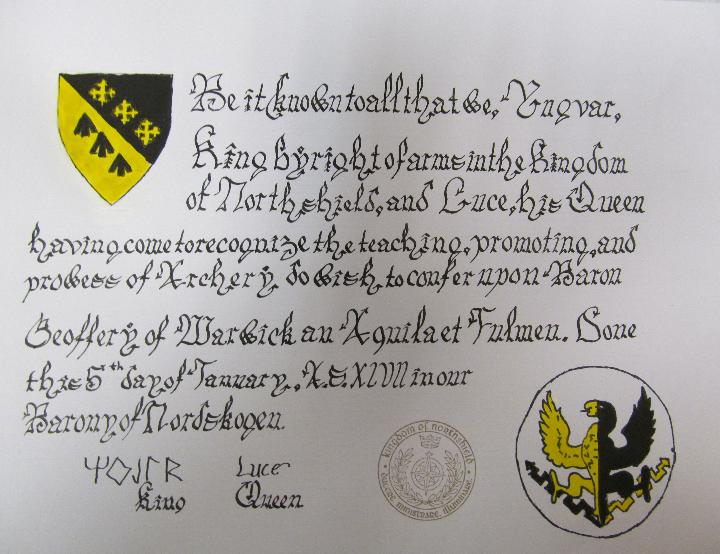 Be it known to all that we, Yngvar,
King by right of arms in the Kingdom
of Northshield, and Luce, his Queen
having come to recognize the teaching, promoting, and
prowess of Archery, do wish to confer upon Baron
Geoffery of Warwick an Aquila et Fulmen. Done
this 5th day of January, A.S. XLVII in our
Barony of Nordskogen.
Luce
King Queen
kingdom of northshield
ministrare illuminare